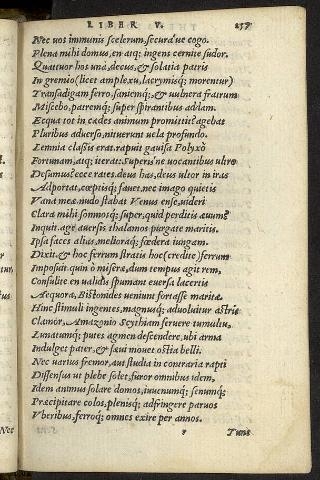 LIBER V.
237
Nec vos immunis scelerum, secura ue cogo.
Plena mihi domus, en atq; ingens cernite sudor.
Quattuor hos una, decus, & solatia patris
In gremio (licet amplexu, lacrymisq; morentur)
Transadigam ferro, saniemq;, & uulnera fratrum
Miscebo, patremq; super spirantibus addam.
Ecqua tot in cædes animum promittit? agebat
Pluribus aduerso, nituerunt uela profundo.
Lemnia classis erat. rapuit gauisa Polyxo
Fortunam, atq; iterat: Superis ne uocantibus ultro
Desumus? ecce rates. deus has, deus ultor in iras
Adportat, cœptisq; fauet. nec imago quietis
Vana meæ. nudo stabat Venus ense, uideri
Clara mihi, somnosq; super, quid perditis æuum?
Inquit. age auersis thalamos purgate maritis.
Ipsa faces alias, melioraq; fœdera iungam.
Dixit. & hoc ferrum stratis hoc (credite) ferrum
Imposuit. quin ô miseræ, dum tempus agit rem,
Consulite en ualidis spumant euersa lacertis
Aequora, Bistonides ueniunt forsasse maritæ.
Hinc stimuli ingentes, magnusq; aduoluitur astris
Clamor, Amazonio Scythiam feruere tumultu,
Lunatumq; putes agmen descendere, ubi arma
Indulget pater, & sæui mouet ostia belli.
Nec uarius fremor, aut studia in contraria rapti
Dissensus ut plebe solet, furor omnibus idem,
Idem animus solare domos, iuuenumq; senumq;
Præcipitare colos, plenisq; adfringere paruos
Vberibus, ferroq; omnes exire per annos.
Tunc
Nec